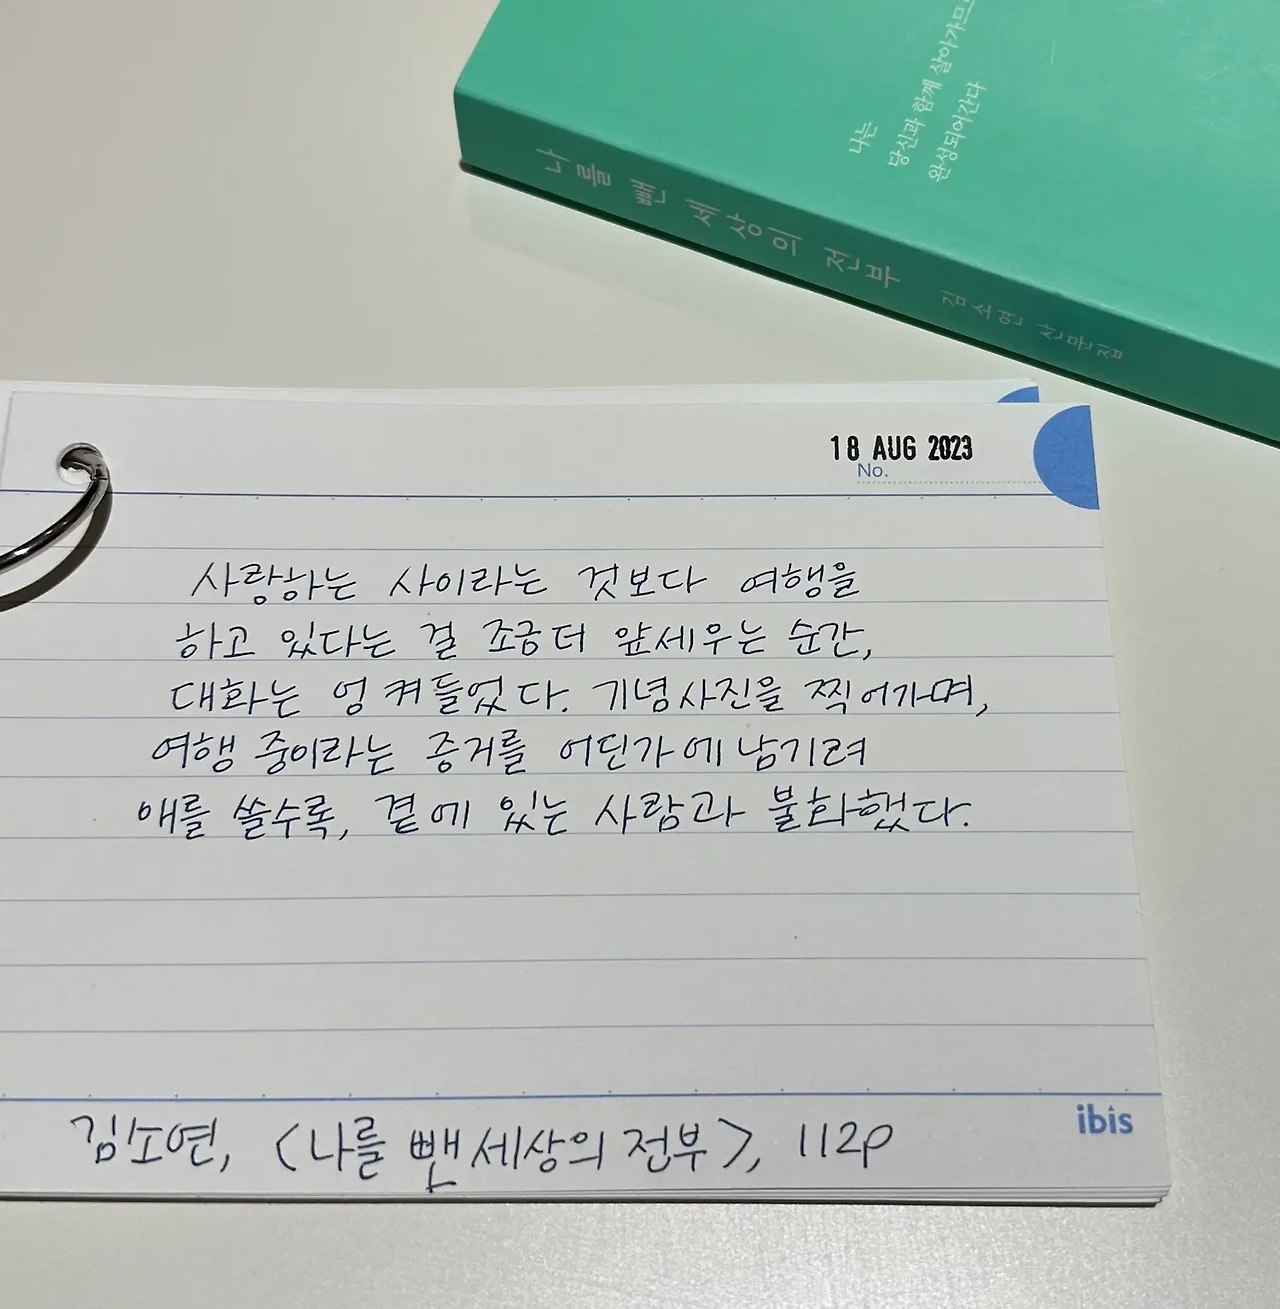 나는
당신과 함께 살아가므로
완성되어간다
나를 뺀 세상의 전부 김소연 산문집
18 AUG 2023
No.
사랑하는 사이라는 것보다 여행을
하고 있다는 걸 조금 더 앞세우는 순간,
대화는 엉켜들었다. 기념사진을 찍어가며,
여행 중이라는 증거를 어딘가에 남기려
애를 쓸수록, 곁에 있는 사람과 불화했다.
ibis
김소연, <나를 뺀 세상의 전부>, 112p